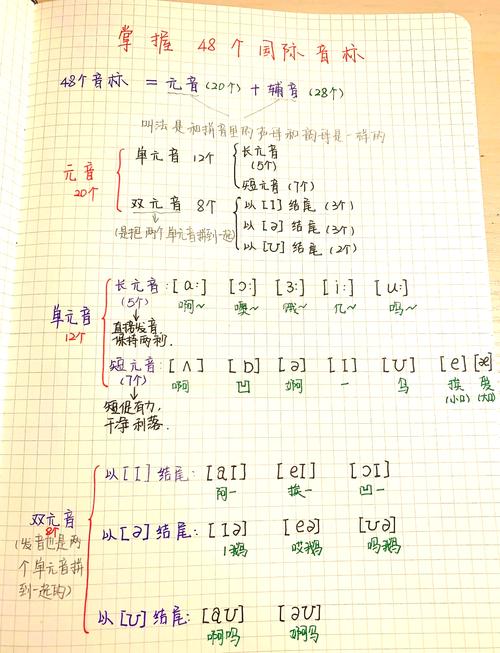 掌握 48个国际音标
48个音标 = 元音(20个) + 辅音(28个)
叫法是和拼音里的声母和韵母是一样的
元音 20个
单元音 12个
长元音 (5个)
短元音 (7个)
双元音 8个
(是把两个单元音拼到一起)
以[I]结尾 (3个)
以[ə]结尾 (3个)
以[ʊ]结尾 (2个)
单元音 12个
长元音: [a:] [ɔ:] [ɜ:] [i:] [u:]
(5个) 啊~ 噢~
直接发音
保持两秒.
短元音: [ʌ] [ɒ] [ə] [I] [ʊ] [e] [æ]
(7个) 啊 凹 婀 一 乌 挨 爱
(小口) (大口)
短促有力,
干净利落.
双元音
8个
(发音也是两
个单元音拼
到一起的)
以[I]结尾: [aI] [eI] [ɔI]
阿一 挨一 凹一
以[ə]结尾: [Iə] [eə] [ʊə]
哎鹅
以[ʊ]结尾: [aʊ] [əʊ]